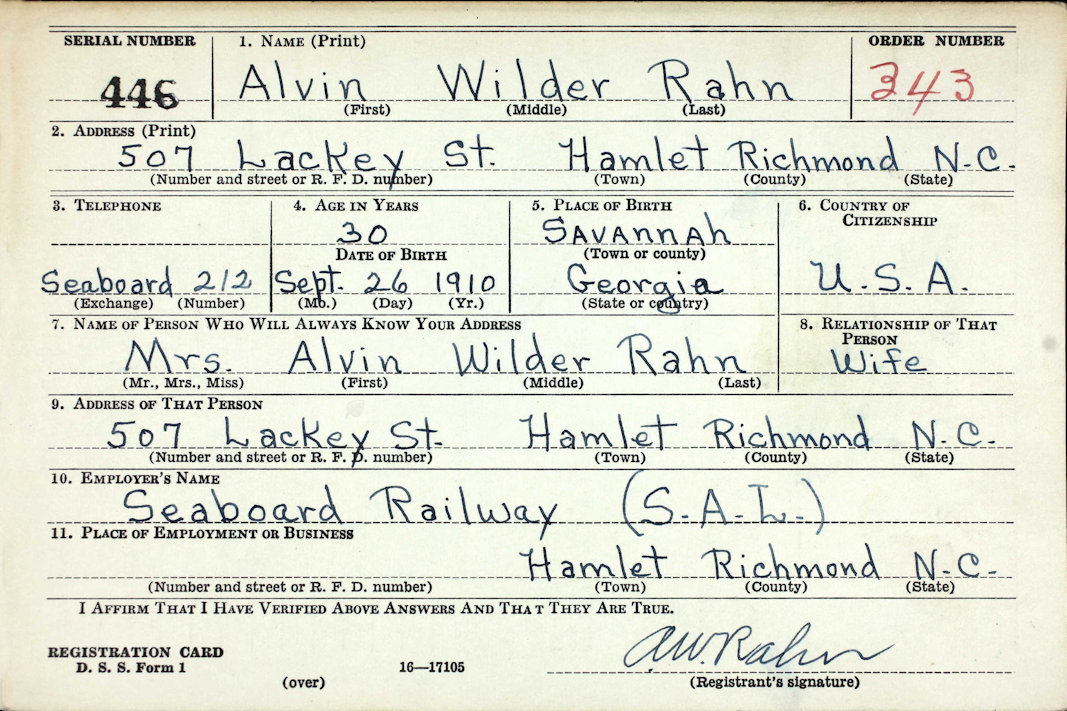 SERIAL NUMBER 1. NAME (Print) ORDER NUMBER
446 Alvin Wilder Rahn 343
(First) (Middle) (Last)
2. ADDRESS (Print)
507 Lackey St. Hamlet Richmond N.C.
(Number and street or R. F. D. number) (Town) (County) (State)
3. TELEPHONE 4. AGE IN YEARS 5. PLACE OF BIRTH 6. COUNTRY OF CITIZENSHIP
30 Savannah
DATE OF BIRTH (Town or county)
Seaboard 212 Sept. 26 1910 Georgia U.S.A.
(Exchange) (Number) (Mo.) (Day) (Yr.) (State or country)
7. NAME OF PERSON WHO WILL ALWAYS KNOW YOUR ADDRESS 8. RELATIONSHIP OF THAT PERSON
Mrs. Alvin Wilder Rahn Wife
(Mr., Mrs., Miss) (First) (Middle) (Last)
9. ADDRESS OF THAT PERSON
507 Lackey St. Hamlet Richmond N.C.
(Number and street or R. F. D. number) (Town) (County) (State)
10. EMPLOYER'S NAME
Seaboard Railway (S.A.L.)
11. PLACE OF EMPLOYMENT OR BUSINESS
Hamlet Richmond N.C.
(Number and street or R. F. D. number) (Town) (County) (State)
I AFFIRM THAT I HAVE VERIFIED ABOVE ANSWERS AND THAT THEY ARE TRUE.
A.W. Rahn
REGISTRATION CARD
D. S. S. Form 1 16—17105
(over) (Registrant's signature)